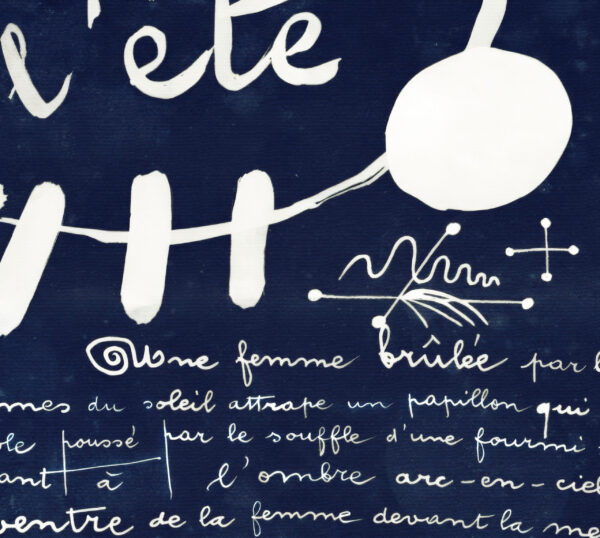 l'été
Une femme brûlée par
mes du soleil attrape un papillon qui
poussé par le souffle d'une fourmi
à l'ombre arc-en-ciel
ventre de la femme devant la